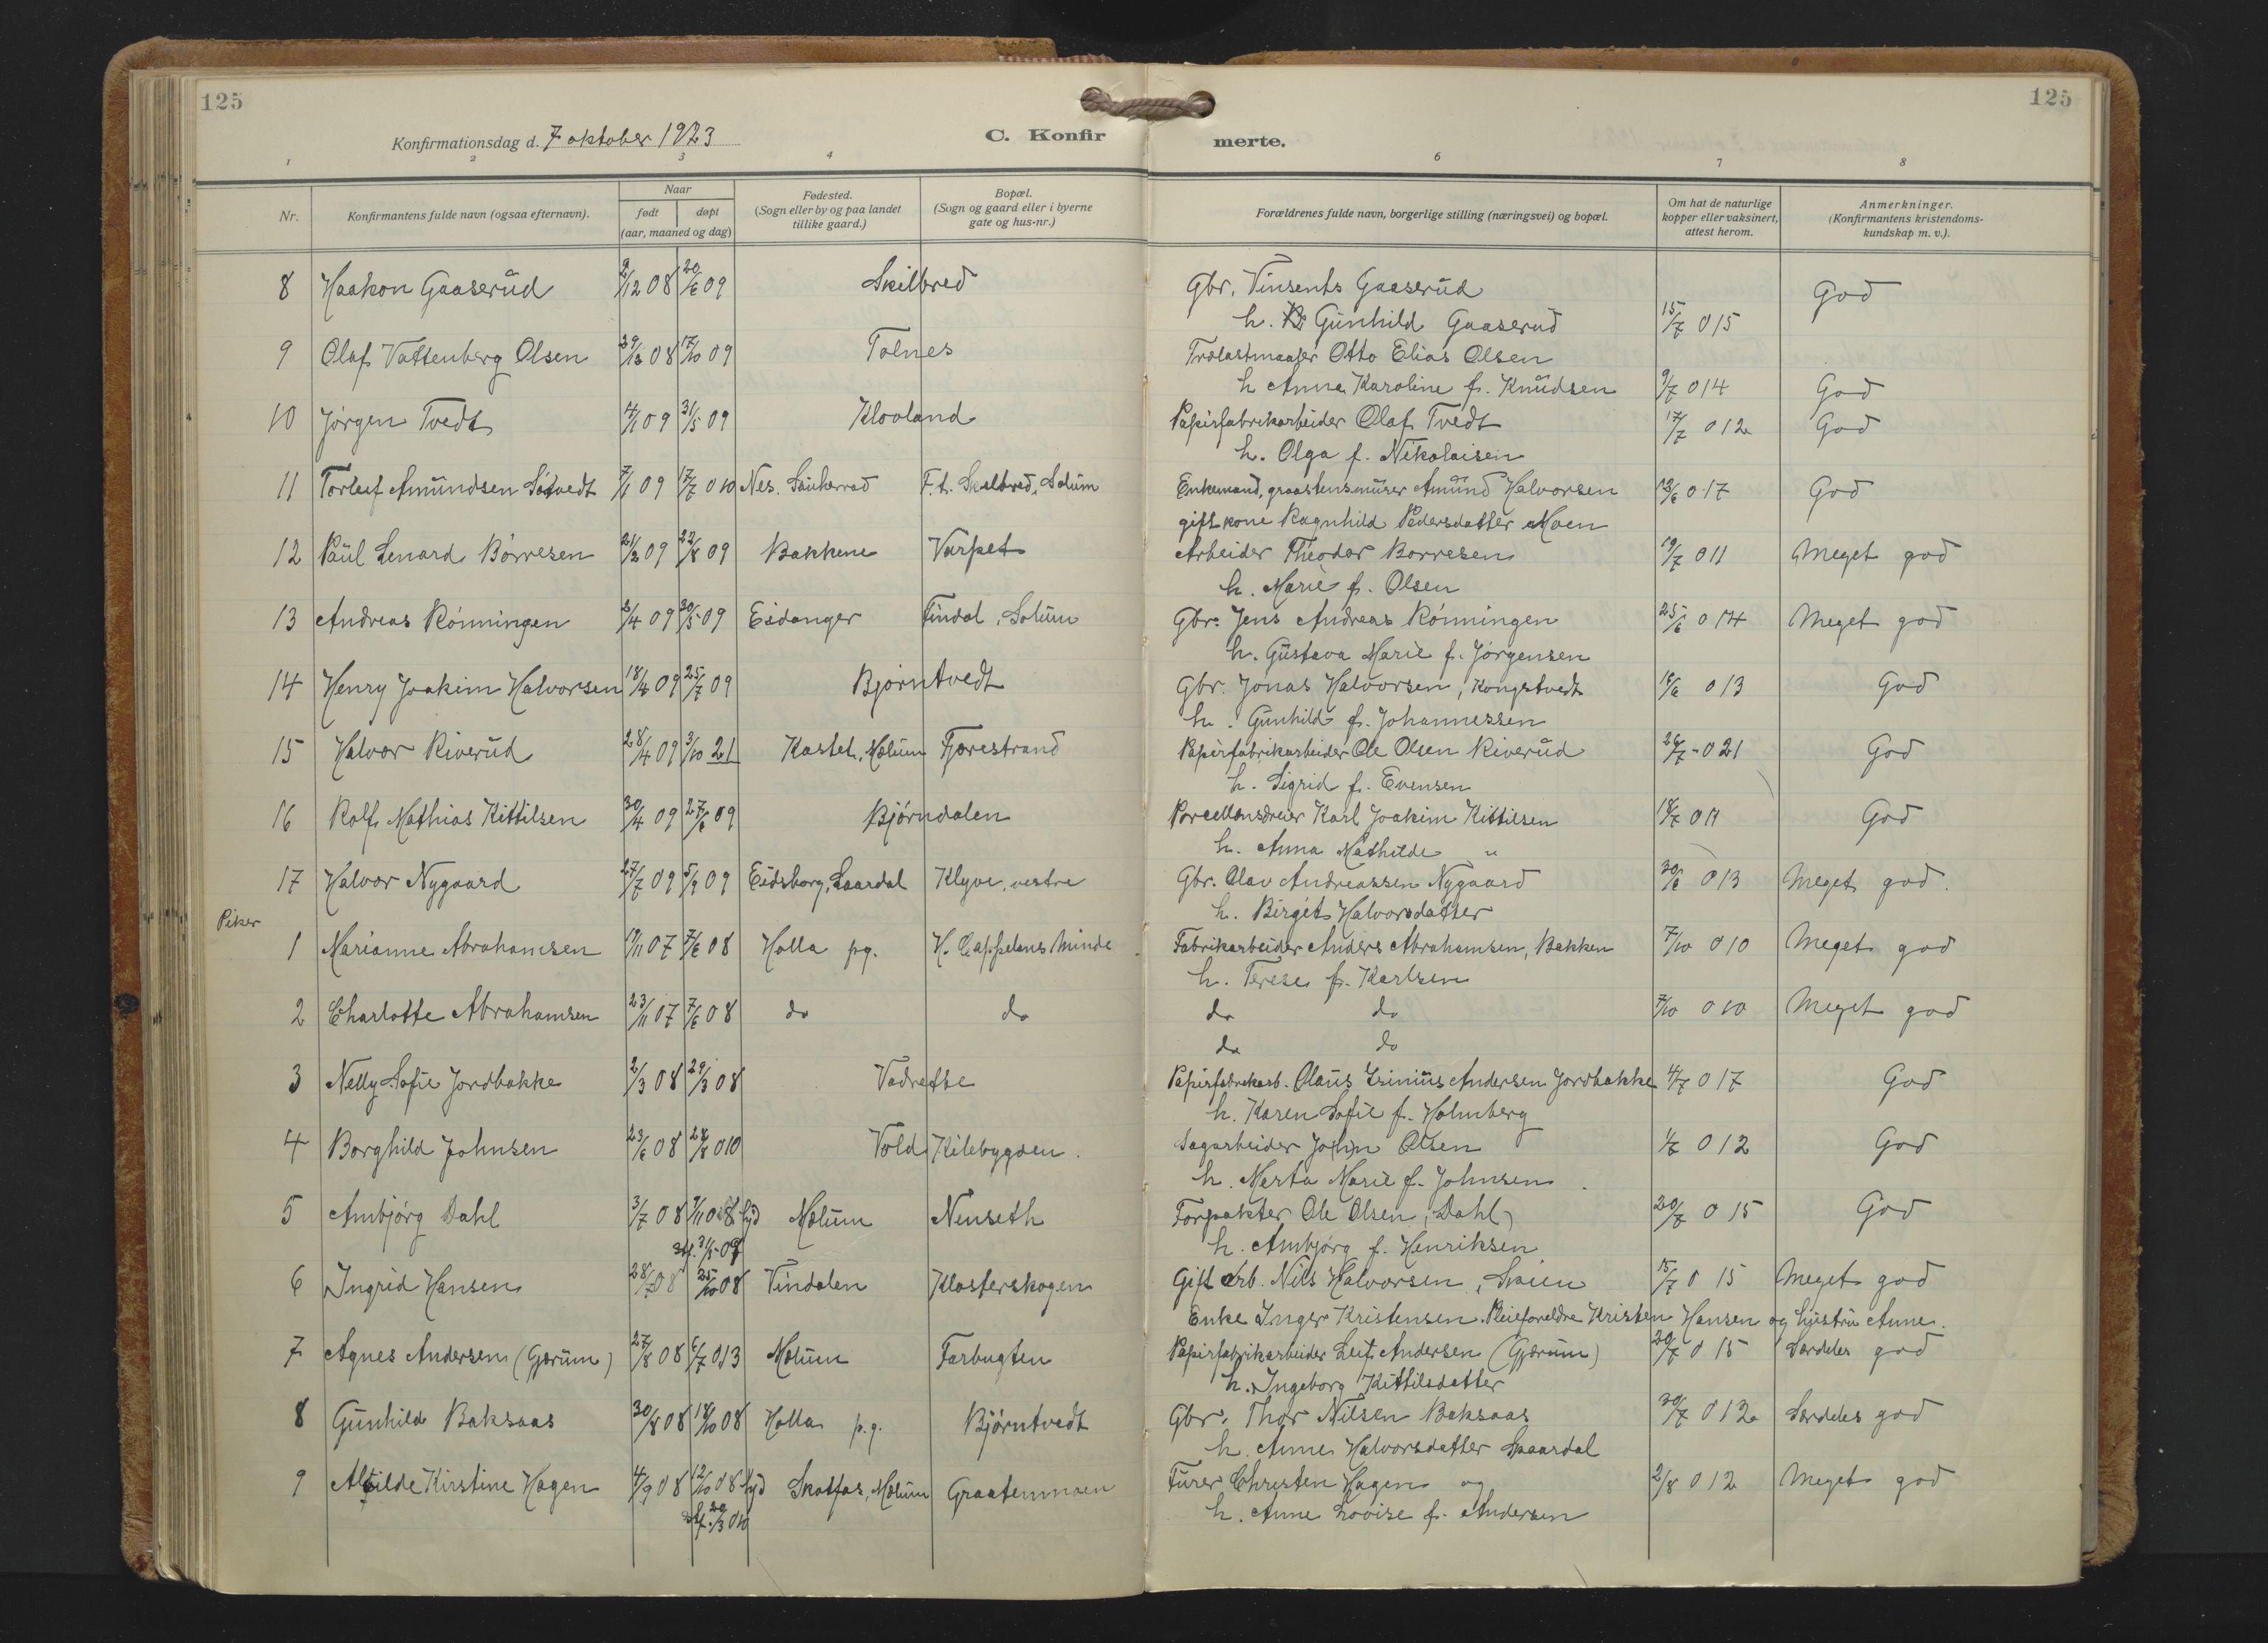 125
125
Konfirmationsdag d. 7 oktober 1923
C. Konfir merte.
1 2 3 4 6 7 8
Nr.
Konfirmantens fulde navn (ogsaa efternavn).
Naar
født døpt
(aar, maaned og dag)
Fødested.
(Sogn eller by og paa landet
tillike gaard.)
Bopæl.
(Sogn og gaard eller i byerne
gate og hus-nr.)
Forældrenes fulde navn, borgerlige stilling (næringsvei) og bopæl.
Om hat de naturlige
kopper eller vaksinert,
attest herom.
Anmerkninger.
(Konfirmantens kristendoms-
kundskap m. v.).
8 Haakon Gaaserud 9/12 08 20/6 09 Skilbred Gbr. Vinsents Gaaserud God
h. Gunhild Gaaserud 15/7 015
9 Olaf Vattenberg Olsen 08 17/10 09 Tolnes Trælastmaaler Otto Elias Olsen
h Anna Karoline f. Knudsen 9/7 014 God
10 Jörgen Tvedt 4/1 09 31/5 09 Klovland Papirfabrikarbeider Olaf Tvedt 17/7 012 God
h. Olga f. Nikolaisen
11 Torleif Amundsen 7/1 09 17/7 010 Nes. Sauherrad F.t. Skilbred, Solum Enkemand, graastensmurer Amund Halvorsen 017 God
gift kone Ragnhild Pedersdatter Moen
12 Paul Lenard Börresen 21/2 09 22/8 09 Bakkene Varpet Arbeider Theodor Borresen 19/7 011 Meget god
h. Marie f. Olsen
13 Andreas Rönningen 2/4 09 30/5 09 Eidanger Findal, Solum Gbr. Jens Andreas Rönningen 25/6 014 Meget god
h. Gustava Marie f. Jörgensen
14 Henry Joakim Halvorsen 18/4 09 25/7 09 Bjørntvedt Gbr. Jonas Halvorsen, Kongstvedt 013 God
h. Gunhild f. Johannessen
15 Halvor Riverud 28/4 09 3/10 21 Kastet, Mælum Fjærestrand Papirfabrikarbeider Ole Olsen Riverud 26/7 - 021 God
h. Sigrid f. Evensen
16 Rolf Mathias Kittilsen 30/4 09 27/6 09 Bjørndalen Porcellænsdreier Karl Joakim Kittilsen 18/7 011 God
h. Anna Mathilde "
17 Halvor Nygaard 27/7 09 5/9 09 Eidsborg, Laardal Klyve, vestre Gbr. Olav Andreassen Nygaard 30/6 013 Meget god.
h. Birgit Halvorsdatter
Piker
1 Marianne Abrahamsen 07 7/6 08 Holla pg. H. Cappelens Minde Fabrikarbeider Anders Abrahamsen, Bakken 7/10 010 Meget god
h. Terese f. Karlsen
2 Charlotte Abrahamsen 23/11 07 7/6 08 do do do do 7/10 010 Meget god
do do
3 Nelly Sofie Jordbakke 2/3 08 29/3 08 Vadrette Papirfabrikarb. Olaus Andersen Jordbakke 4/7 017 God
h. Karen Sofie f. Holmberg
4 Borghild Johnsen 23/6 08 28/8 010 Vold Kilebygden. Sagarbeider John Olsen 1/7 012 God
h. Marta Marie f. Johnsen.
5 Ambjørg Dahl 3/7 08 9/11 08 hjd Mælum Nenseth Forpakter Ole Olsen, Dahl 20/7 015 God
stf. 31/5 - 09 h. Ambjørg f. Henriksen
6 Ingrid Hansen 28/7 08 25/10 08 Vindalen Klosterskogen Gift arb. Nils Halvorsen, Skien 15/7 0 15 Meget god
Enke Inger Kristensen. Pleieforældre Kristen Hansen og hustru Anne.
7 Agnes Andersen (Gjærum) 27/8 08 6/7 013 Mælum Farbugten Papirfabrikarbeider Leif Andersen (Gjærum) 20/7 0 15 Særdeles god
h. Ingeborg Kittilsdatter
8 Gunhild Baksaas 30/8 08 18/10 08 Holla p.g. Bjørntvedt Gbr. Thor Nilsen Baksaas 30/7 012 Særdeles god
h. Anne Halvorsdatter Skaardal
9 Alfilde Kirstine Hagen 4/9 08 12/10 08 hjd Skotfos, Mælum Graatenmoen Furer Christen Hagen og 2/8 012 Meget god
stf. 29/3 010 h. Anne Lovise f. Andersen